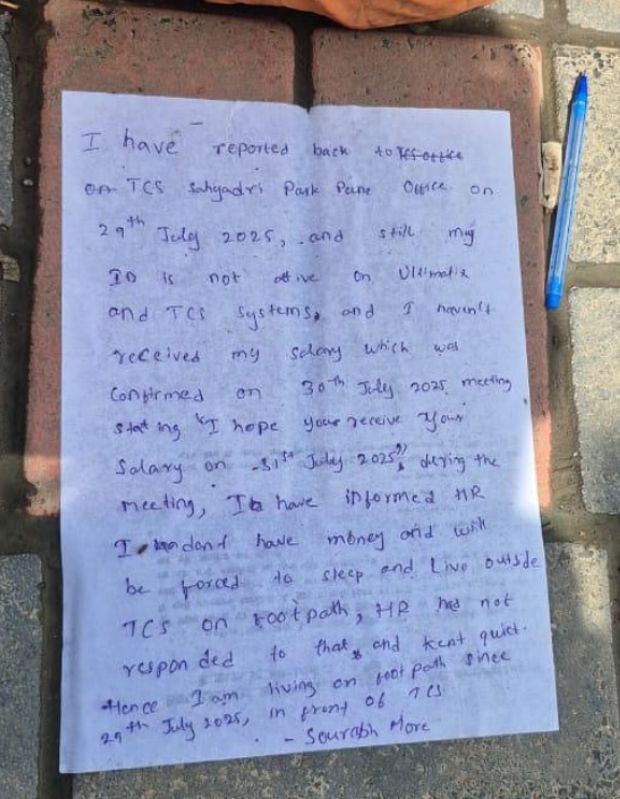 I have reported back to TCS office
on TCS Sahyadri Park Pune Office on
29th July 2025, and still my
ID is not ative on Ultimatix
and TCS systems, and I haven't
received my salary which was
confirmed on 30th July 2025 meeting
stating "I hope your receive your
Salary on 31st July 2025", during the
meeting, I have informed HR
I dont have money and will
be forced to sleep and Live outside
TCS on footpath, HR had not
responded to that, and kept quiet.
Hence I am living on footpath since
29th July 2025, in front of TCS
- Sourabh More